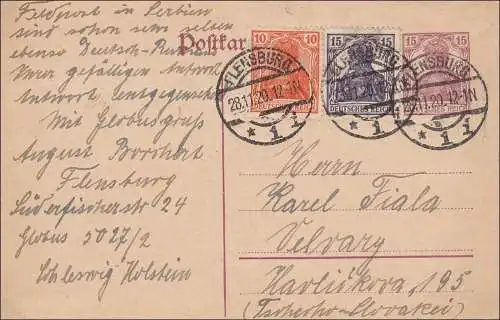 Feldpost in Serbien
sind schon sehr selten
ebenso Deutsch-
Postkar
Ihrer gefälligen Antwort
Antwort entgegensehe
Mit Globusgruß
August Borchert
Flensburg
Süderfischerstr 24
Globus 5027/2
Schleswig Holstein
10 10
DEUTSCHES REICH
15 15
DEUTSCHES REICH
15 15
FLENSBURG
28.11.20.12-1N
* 1 i
FLENSBURG
28.11.20.12-1N
* 1 i
Herrn
Karel Fiala
Velvary
Havlíčkova, 195
(Tschecho-Slovakei)